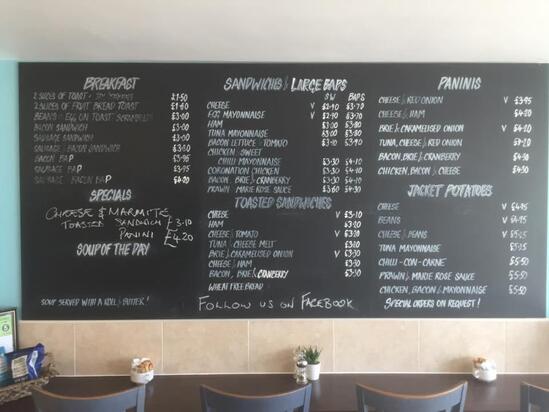 BREAKFAST
2 SLICES OF TOAST £1.50
2 SLICES OF FRUIT BREAD TOAST
BEANS EGG ON TOAST £3.00
BACON SANDWICH £3.00
SAUSAGE SANDWICH £3.00
SAUSAGE BACON SANDWICH
BACON BAP £3.95
SAUSAGE BAP £3.95
SAUSAGE BACON BAP £4.20
SPECIALS
CHEESE & MARMITE
TOASTED SANDWICH £3.10
PANINI £4.20
SOUP OF THE DAY
SOUP SERVED WITH A ROLL & BUTTER!
SANDWICHES & LARGE BAPS
SW BAPS
CHEESE V £2.90 £3.70
EGG MAYONNAISE V £2.90 £3.70
HAM £3.00 £3.80
TUNA MAYONNAISE £3.00 £3.80
BACON LETTUCE & TOMATO £3.10 £3.90
CHICKEN & SWEET
CHILLI MAYONNAISE £3.30 £4.10
CORONATION CHICKEN £3.30 £4.10
BACON, BRIE & CRANBERRY £3.30 £4.10
PRAWN & MARIE ROSE SAUCE £3.60 £4.30
TOASTED SANDWICHES
CHEESE V £3.10
HAM £3.10
CHEESE & TOMATO V £3.20
TUNA & CHEESE MELT £3.20
BRIE & CARAMELISED ONION V £3.30
CHEESE & HAM £3.30
BACON, BRIE & CRANBERRY £3.50
WHEAT FREE BREAD
FOLLOW US ON FACEBOOK
PANINIS
CHEESE & RED ONION V £3.95
CHEESE & HAM £4.20
BRIE & CARAMELISED ONION V £4.20
TUNA, CHEESE & RED ONION £4.20
BACON, BRIE & CRANBERRY £4.20
CHICKEN, BACON & CHEESE £4.20
JACKET POTATOES
CHEESE V £4.95
BEANS V £4.95
CHEESE & BEANS V £5.25
TUNA MAYONNAISE £5.25
CHILLI-CON-CARNE £5.50
PRAWN & MARIE ROSE SAUCE £5.50
CHICKEN, BACON & MAYONNAISE £5.50
SPECIAL ORDERS ON REQUEST!